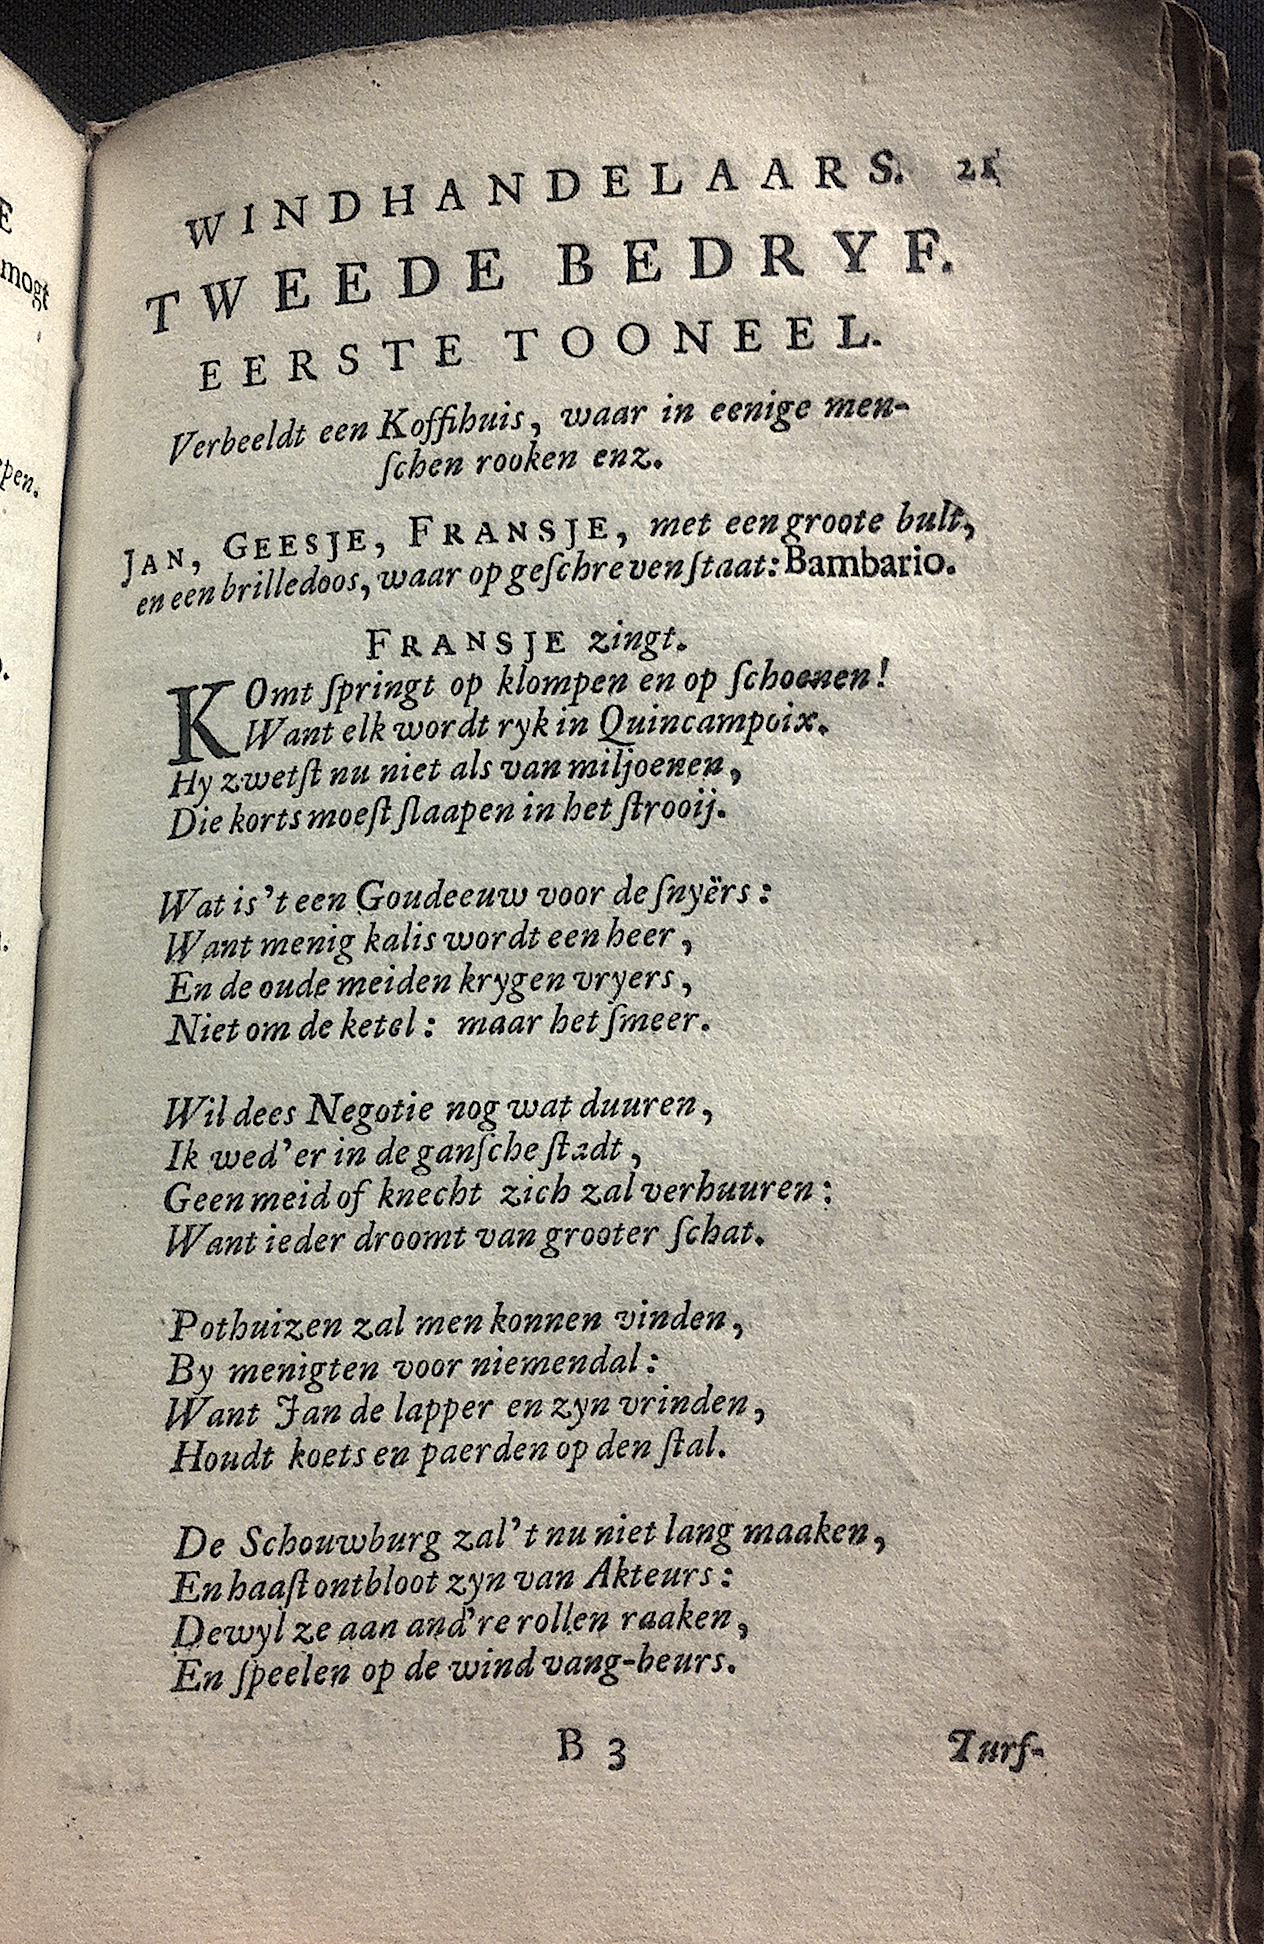 WINDHANDELAARS. 21
TWEEDE BEDRYF.
EERSTE TOONEEL.
Verbeeldt een Koffihuis, waar in eenige men-
ſchen rooken enz.
JAN, GEESJE, FRANSJE, met een groote bult,
en een brilledoos, waar op geſchreven ſtaat: Bambario.
FRANSJE zingt.
KOmt ſpringt op klompen en op ſchoenen!
Want elk wordt ryk in Quincampoix.
Hy zwetſt nu niet als van miljoenen,
Die korts moeſt ſlaapen in het ſtrooij.
Wat is 't een Goudeeuw voor de ſnyërs:
Want menig kalis wordt een heer,
En de oude meiden krygen vryers,
Niet om de ketel: maar het ſmeer.
Wil dees Negotie nog wat duuren,
Ik wed' er in de ganſche ſtadt,
Geen meid of knecht zich zal verhuuren:
Want ieder droomt van grooter ſchat.
Pothuizen zal men konnen vinden,
By menigten voor niemendal:
Want Jan de lapper en zyn vrinden,
Houdt koets en paerden op den ſtal.
De Schouwburg zal 't nu niet lang maaken,
En haaſt ontbloot zyn van Akteurs:
Dewyl ze aan and're rollen raaken,
En ſpeelen op de wind vang-beurs.
B 3 Turf-
E
mogt
pen.